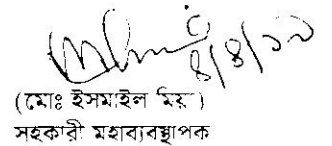 ৪/৪/১২
(মোঃ ইসমাইল মিয়া)
সহকারী মহাব্যবস্থাপক